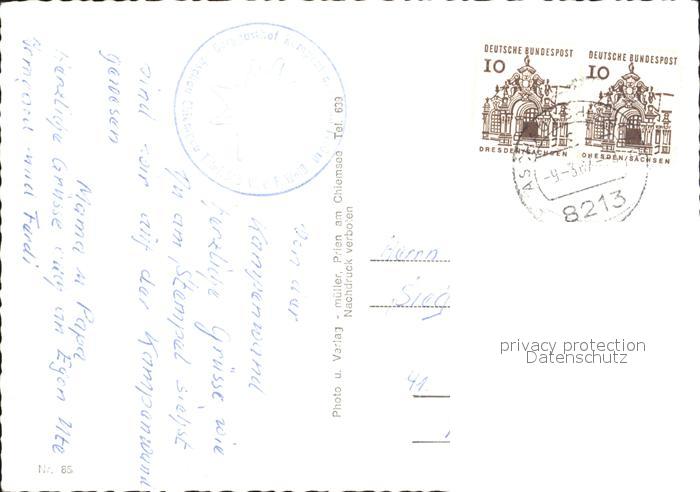 Von der
Kampenwand
herzliche Grüsse wie
Du am Stempel siehst
sind wir auf der Kampenwand
gewesen
Mama u Papa
herzliche Grüsse auch an Egon Ute
und Ferdi
Photo u. Verlag - müller, Prien am Chiemsee - Tel. 639
Nachdruck verboten
Nr. 85
DEUTSCHE BUNDESPOST
10
DRESDEN/SACHSEN
DEUTSCHE BUNDESPOST
10
DRESDEN/SACHSEN
8213
Herrn
Sieg
41.
privacy protection
Datenschutz